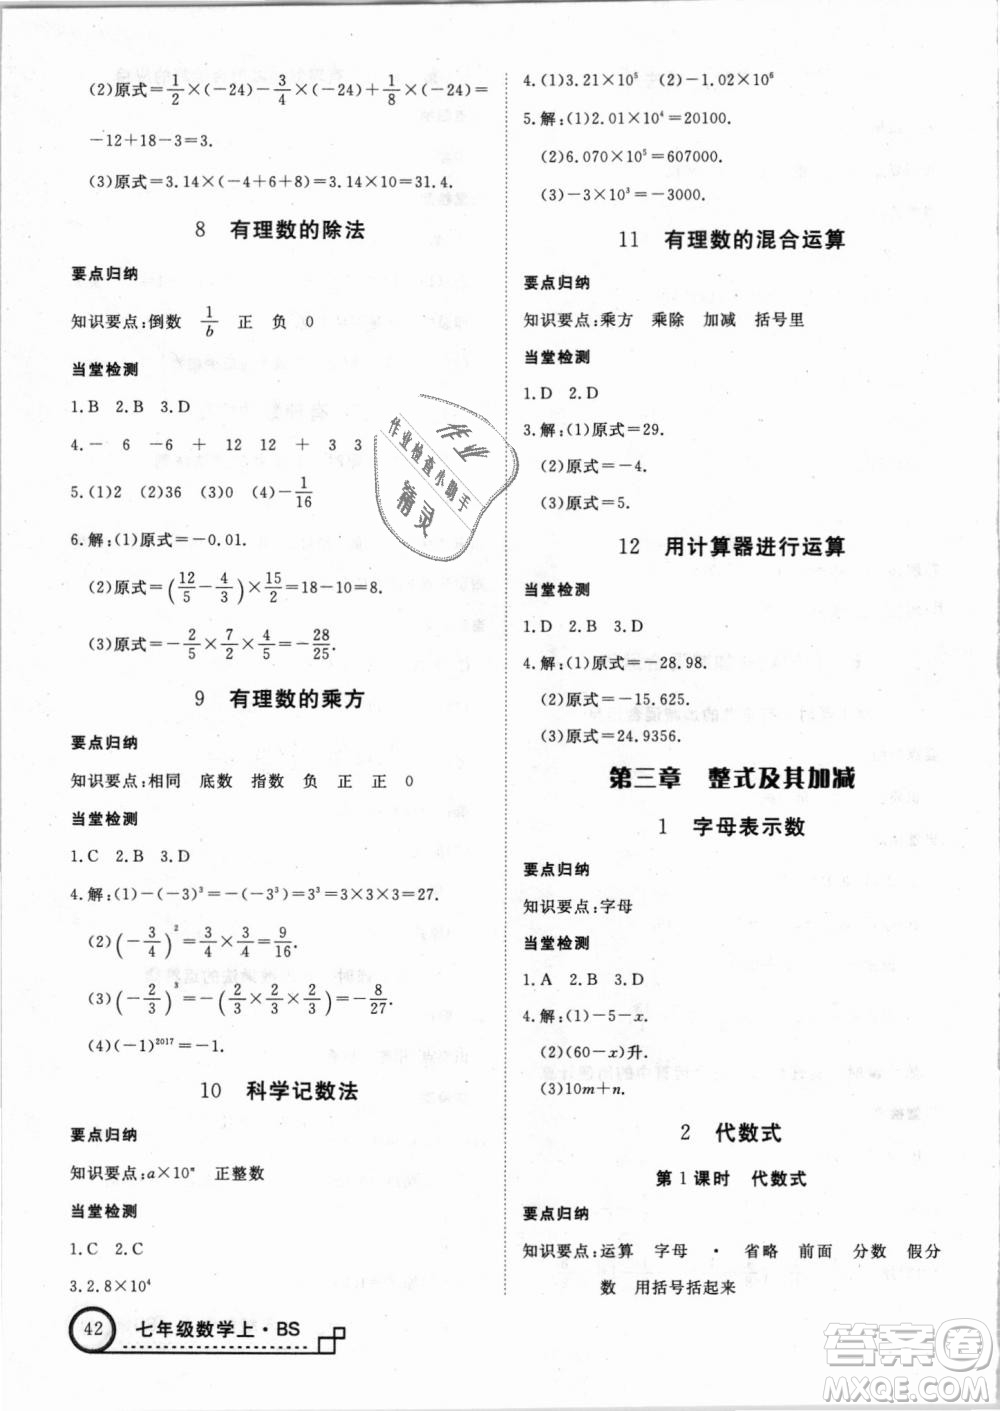 (2)原式=1/2×(-24)-3/4×(-24)+1/8×(-24)=
-12+18-3=3.
(3)原式=3.14×(-4+6+8)=3.14×10=31.4.
8 有理数的除法
要点归纳
知识要点:倒数 1/b 正 负 0
当堂检测
1.B 2.B 3.D
4.- 6 -6 + 12 12 + 3 3
5.(1)2 (2)36 (3)0 (4)-1/16
6.解:(1)原式=-0.01.
(2)原式=(12/5-4/3)×15/2=18-10=8.
(3)原式=-2/5×7/2×4/5=-28/25.
9 有理数的乘方
要点归纳
知识要点:相同 底数 指数 负 正 正 0
当堂检测
1.C 2.B 3.D
4.解:(1)-(-3)³=-(-3³)=3³=3×3×3=27.
(2)(-3/4)²=3/4×3/4=9/16.
(3)(-2/3)³=-(2/3×2/3×2/3)=-8/27.
(4)(-1)²⁰¹⁷=-1.
10 科学记数法
要点归纳
知识要点:a×10ⁿ 正整数
当堂检测
1.C 2.C
3.2.8×10⁴
42 七年级数学上·BS
4.(1)3.21×10⁵ (2)-1.02×10⁶
5.解:(1)2.01×10⁴=20100.
(2)6.070×10⁵=607000.
(3)-3×10³=-3000.
11 有理数的混合运算
要点归纳
知识要点:乘方 乘除 加减 括号里
当堂检测
1.D 2.D
3.解:(1)原式=29.
(2)原式=-4.
(3)原式=5.
12 用计算器进行运算
当堂检测
1.D 2.B 3.D
4.解:(1)原式=-28.98.
(2)原式=-15.625.
(3)原式=24.9356.
第三章 整式及其加减
1 字母表示数
要点归纳
知识要点:字母
当堂检测
1.A 2.B 3.D
4.解:(1)-5-x.
(2)(60-x)升.
(3)10m+n.
2 代数式
第1课时 代数式
要点归纳
知识要点:运算 字母 · 省略 前面 分数 假分
数 用括号括起来
作业
作业检查小助手
精灵
答案圈
MXQE.COM